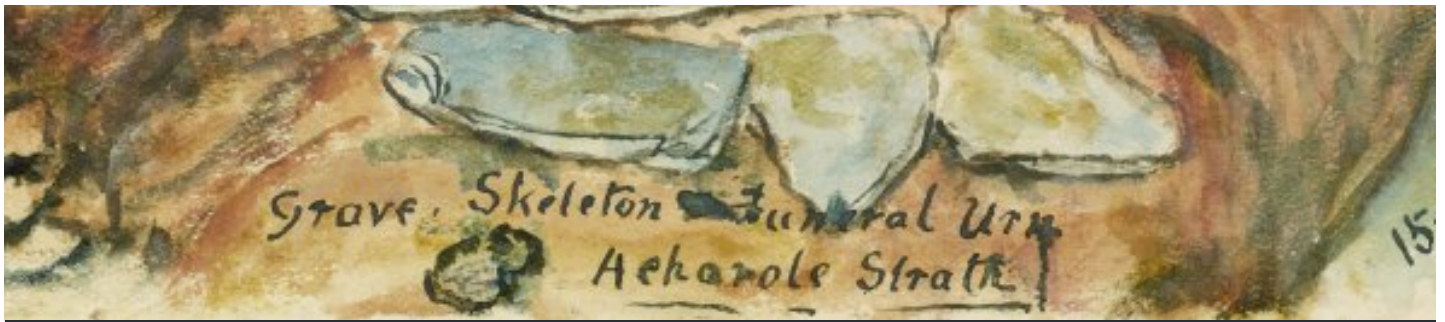 Grave, Skeleton Funeral Urn
Acharole Strath
15